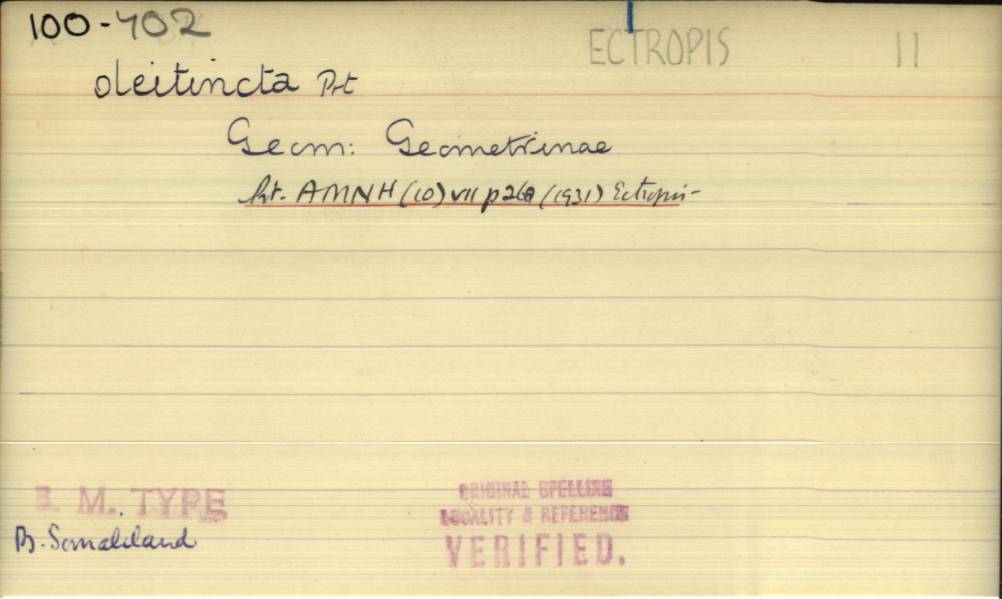 100-402
ECTROPIS 11
oleitincta Prt
Geom: Geometrinae
Prt. AMNH (10) VII p (1931) Ectropis-
B. M. TYPE
B. Somaliland
ORIGINAL SPELLING
LOCALITY & REFERENCE
VERIFIED.